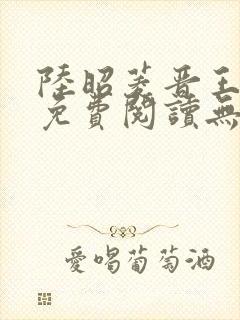 陸昭菱晋王
免費閱讀無
愛喝葡萄酒